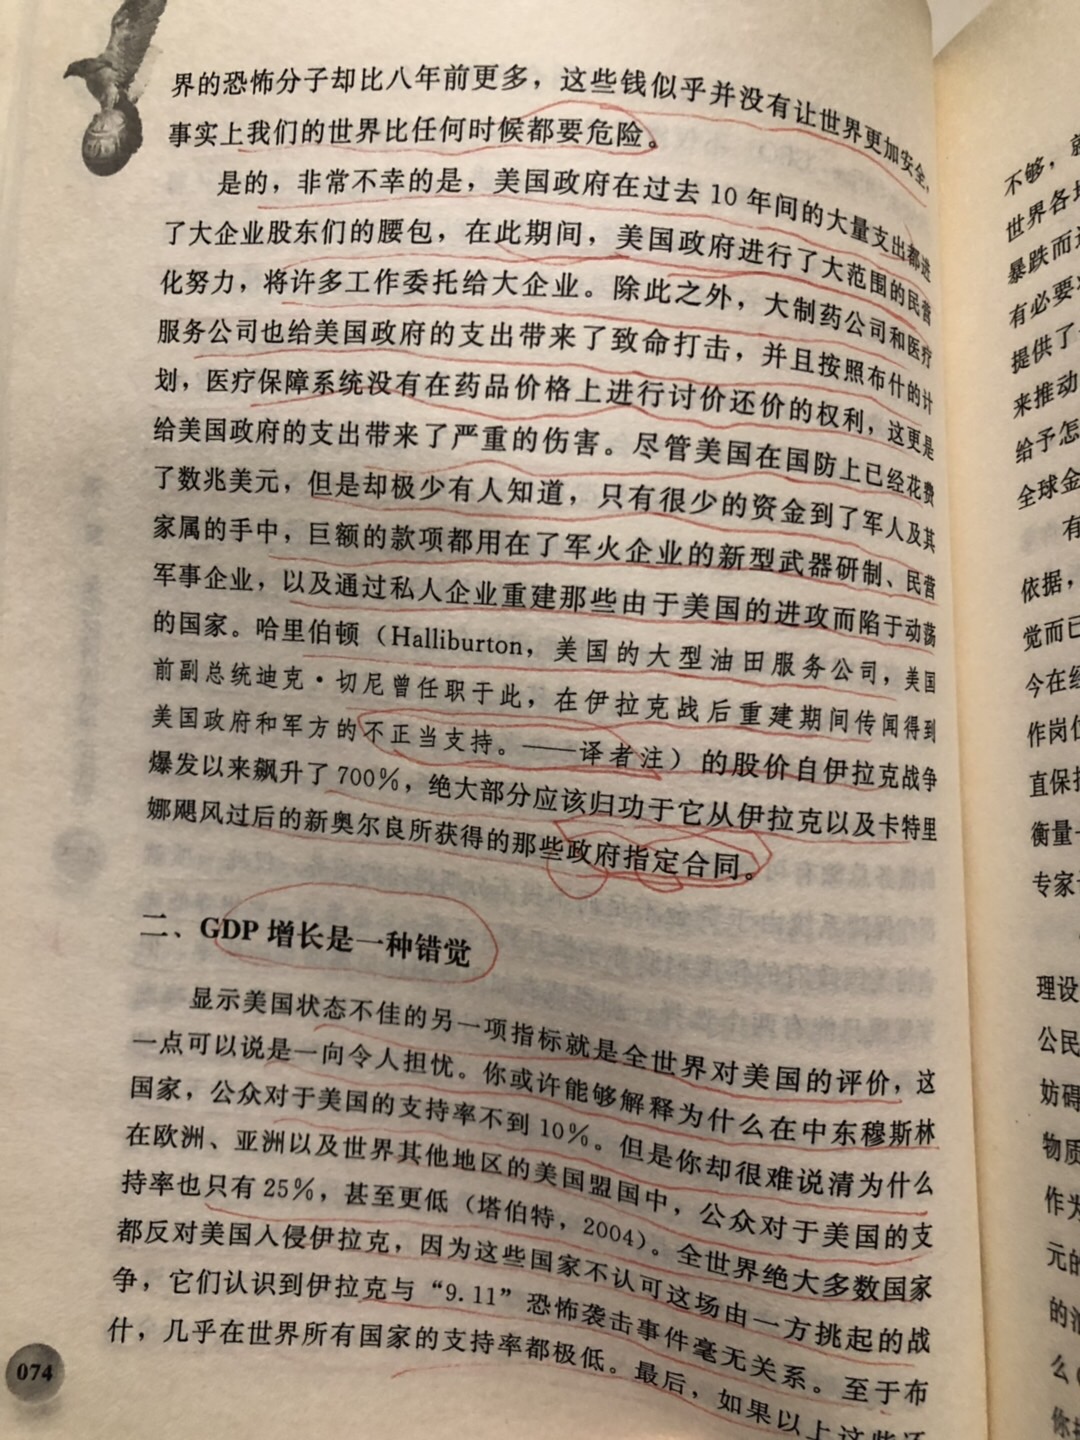 界的恐怖分子却比八年前更多，这些钱似乎并没有让世界更加安全，
事实上我们的世界比任何时候都要危险。
是的，非常不幸的是，美国政府在过去 10 年间的大量支出都进
了大企业股东们的腰包，在此期间，美国政府进行了大范围的民营
化努力，将许多工作委托给大企业。除此之外，大制药公司和医疗
服务公司也给美国政府的支出带来了致命打击，并且按照布什的计
划，医疗保障系统没有在药品价格上进行讨价还价的权利，这更是
给美国政府的支出带来了严重的伤害。尽管美国在国防上已经花费
了数兆美元，但是却极少有人知道，只有很少的资金到了军人及其
家属的手中，巨额的款项都用在了军火企业的新型武器研制、民营
军事企业，以及通过私人企业重建那些由于美国的进攻而陷于动荡
的国家。哈里伯顿（Halliburton，美国的大型油田服务公司，美国
前副总统迪克·切尼曾任职于此，在伊拉克战后重建期间传闻得到
美国政府和军方的不正当支持。——译者注）的股价自伊拉克战争
爆发以来飙升了 700%，绝大部分应该归功于它从伊拉克以及卡特里
娜飓风过后的新奥尔良所获得的那些政府指定合同。
二、GDP 增长是一种错觉
显示美国状态不佳的另一项指标就是全世界对美国的评价，这
一点可以说是一向令人担忧。你或许能够解释为什么在中东穆斯林
国家，公众对于美国的支持率不到 10%。但是你却很难说清为什么
在欧洲、亚洲以及世界其他地区的美国盟国中，公众对于美国的支
持率也只有 25%，甚至更低（塔伯特，2004）。全世界绝大多数国家
都反对美国入侵伊拉克，因为这些国家不认可这场由一方挑起的战
争，它们认识到伊拉克与“9.11”恐怖袭击事件毫无关系。至于布
什，几乎在世界所有国家的支持率都极低。最后，如果以上这些还
074
不够，
世界各
暴跌而
有必要
提供了
来推动
给予怎
全球金
有
依据，
觉而已
今在经
作岗位
直保持
衡量
专家
理设
公民
妨碍
物质
作为
元的
的
么
你